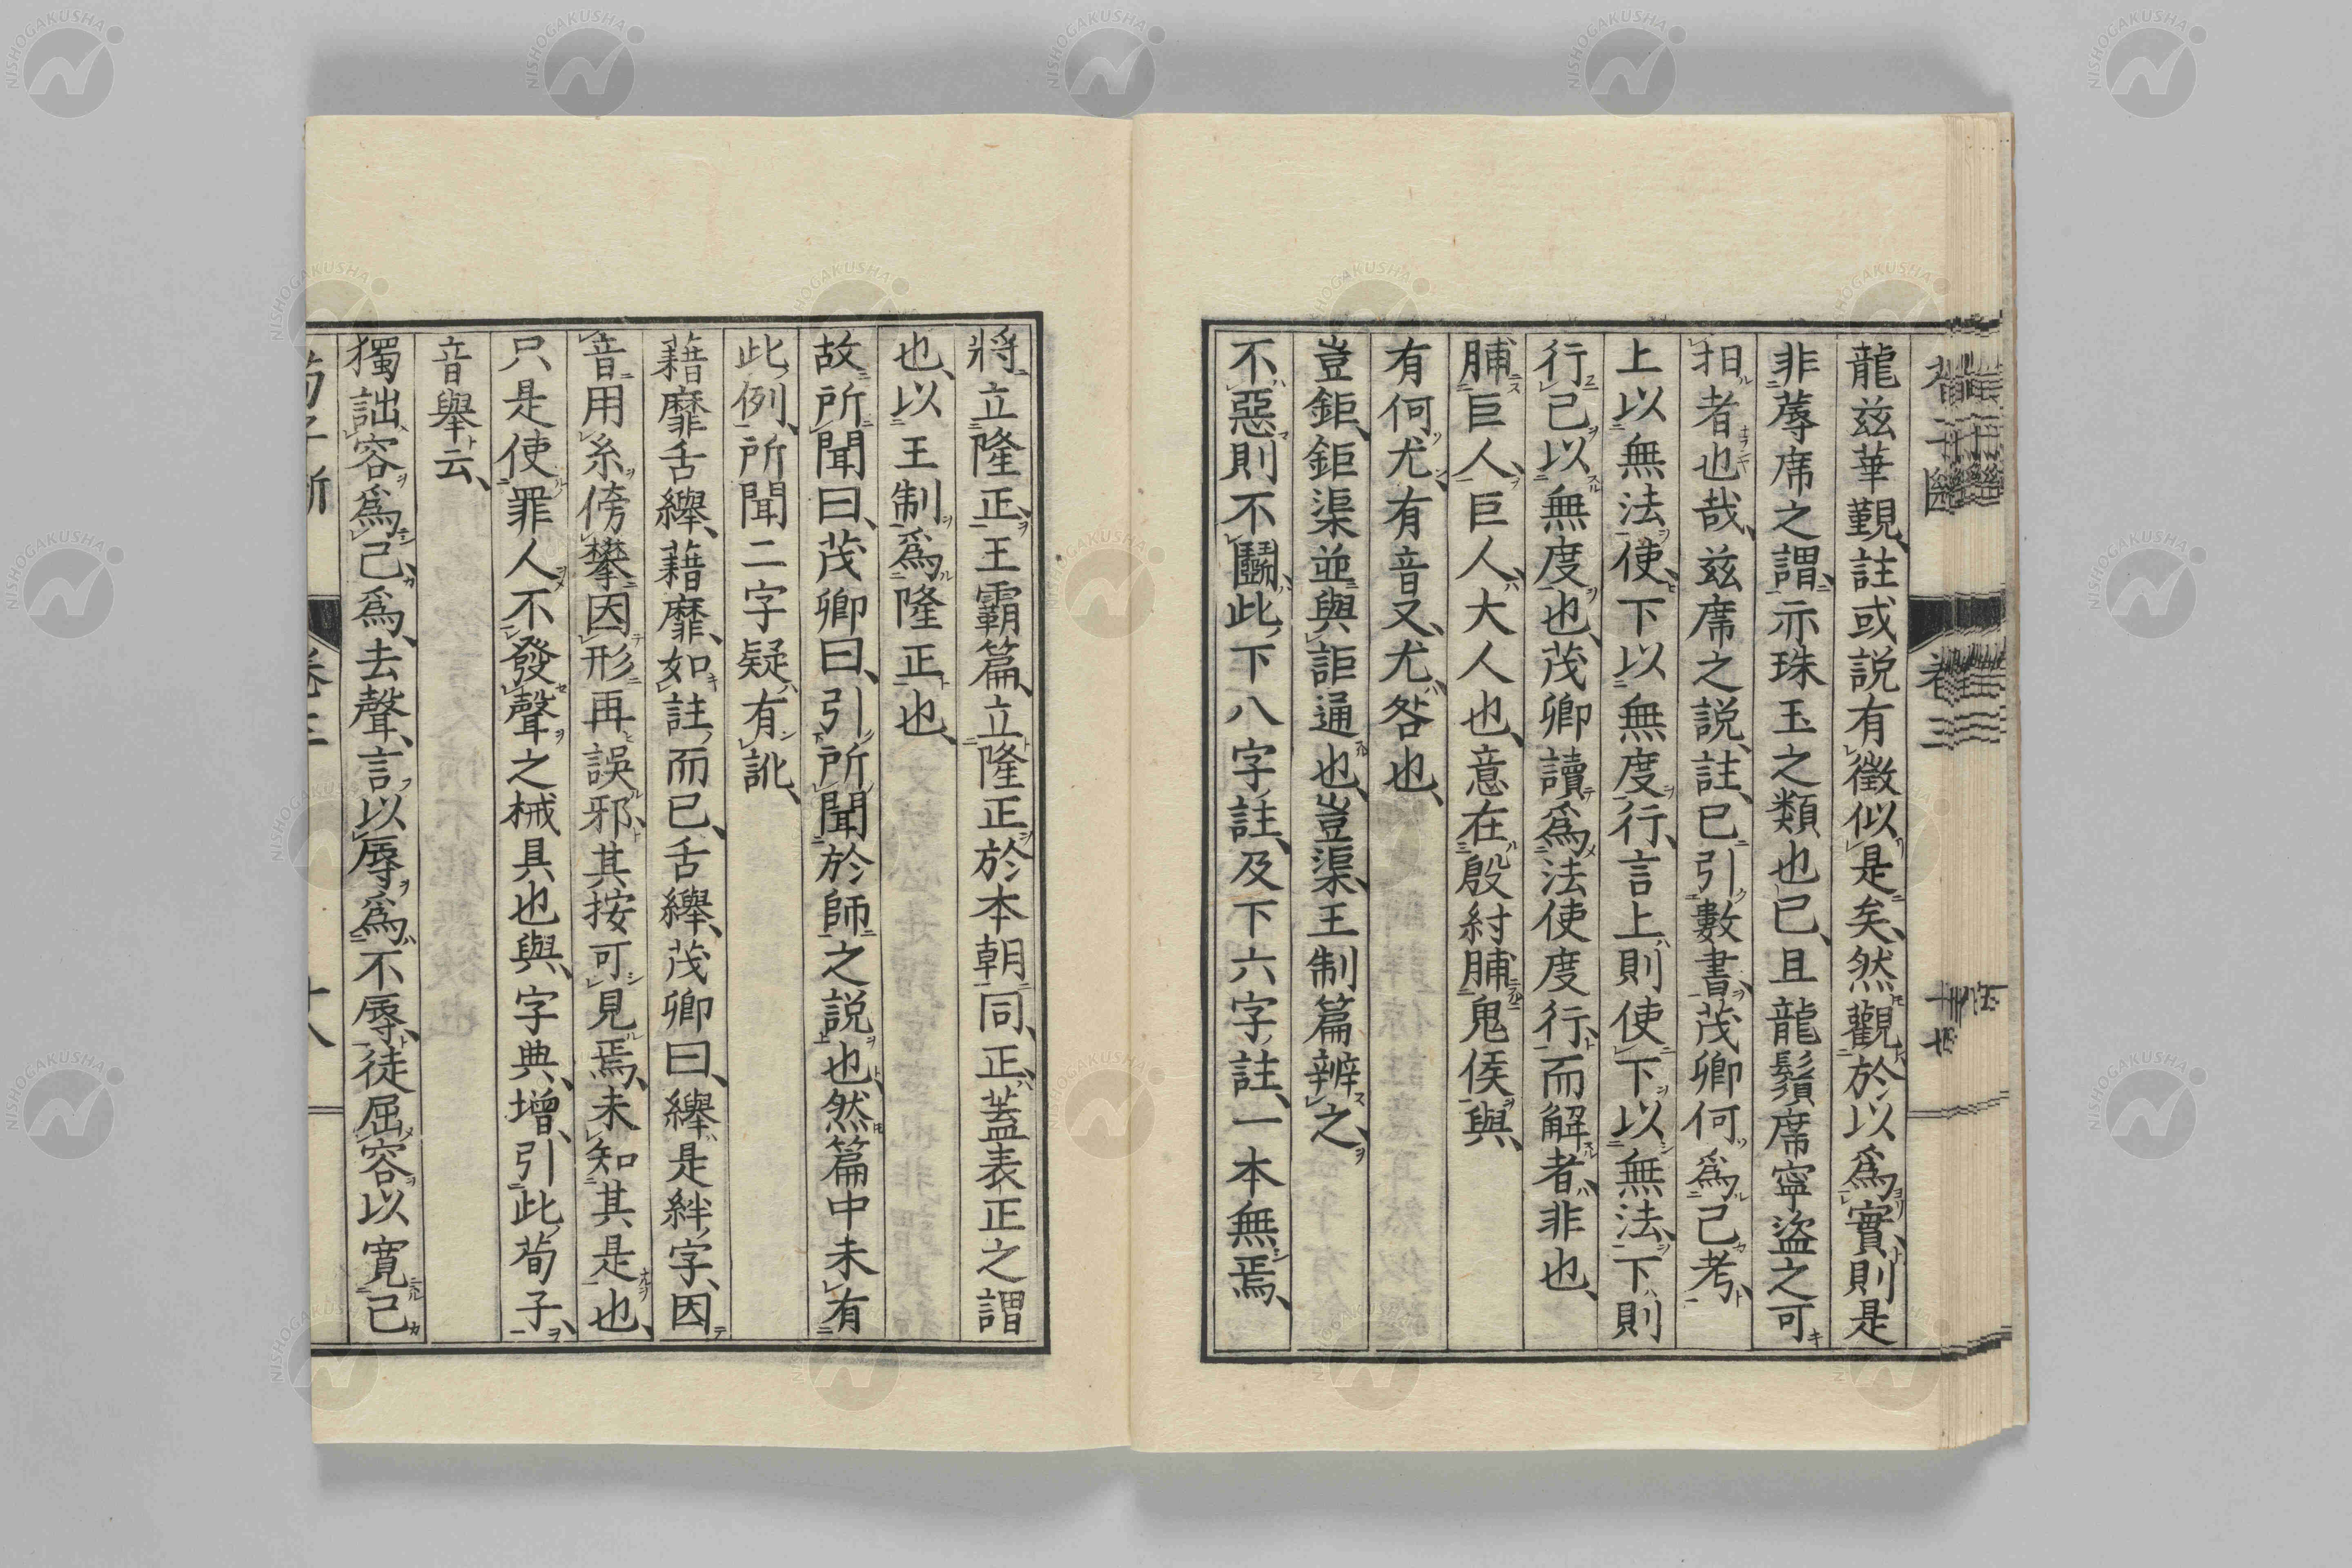 龍茲華覲、註或説有徵似是矣、然觀於以爲實、則是
非蓐席之謂、示珠玉之類也已、且龍鬚席寧盜之可
抇者也哉、茲席之説、註、已引數書、茂卿何爲己考、
上以無法使、下以無度行、言上則使下以無法、下則
行己以無度也、茂卿讀爲法使度行、而解者、非也、
脯巨人、巨人、大人也、意在殷紂脯鬼侯與、
有何尤、有音又、尤、咎也、
豈鉅、鉅渠並與詎通也、豈渠、王制篇辨之、
不惡則不鬭、此下八字、註、及下六字、註、一本無焉、
將立隆正、王霸篇、立隆正於本朝同、正、蓋表正之謂
也、以王制爲隆正也、
故所聞曰、茂卿曰、引所聞於師之説也、然篇中未有
此例、所聞二字疑有訛、
藉靡舌縪、藉靡、如註而已、舌縪、茂卿曰、縪是絆字、因
音用糸傍攀因形再誤邪、其按可見焉、未知其是也、
只是使罪人不發聲之械具也與、字典、增、引此荀子、
音舉云、
獨詘容爲己、爲、去聲、言以辱爲不辱、徒屈容以寬己
卷三